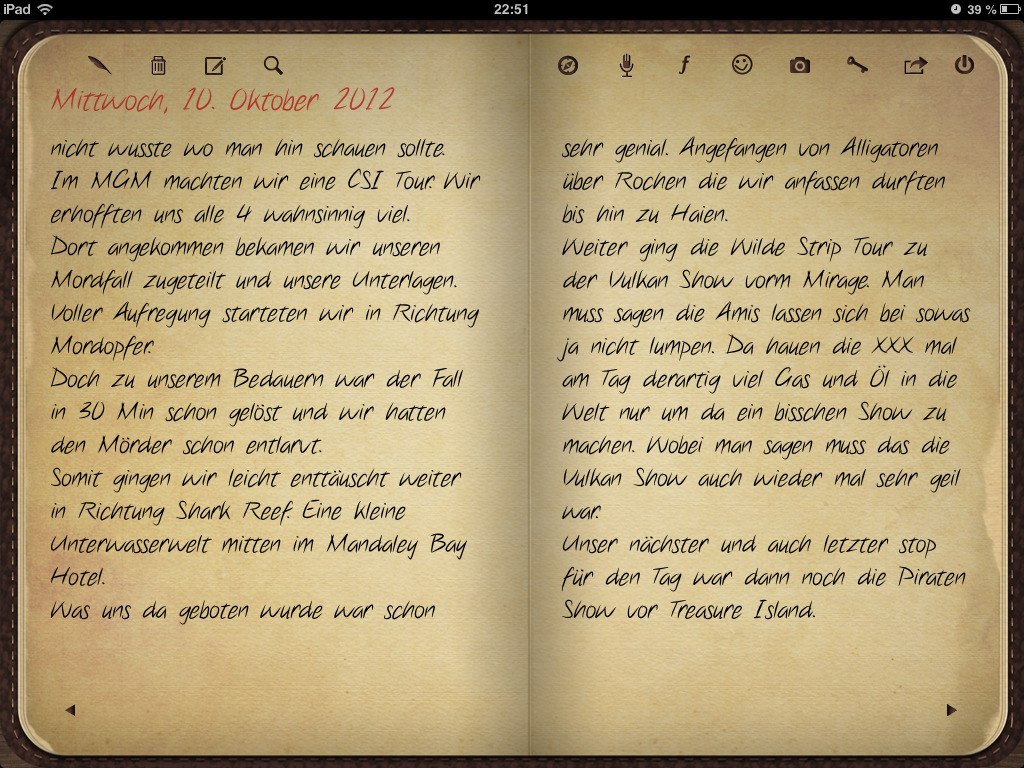 iPad 22:51 39 %
Mittwoch, 10. Oktober 2012
nicht wusste wo man hin schauen sollte.
Im MGM machten wir eine CSI Tour. Wir
erhofften uns alle 4 wahnsinnig viel.
Dort angekommen bekamen wir unseren
Mordfall zugeteilt und unsere Unterlagen.
Voller Aufregung starteten wir in Richtung
Mordopfer.
Doch zu unserem Bedauern war der Fall
in 30 Min schon gelöst und wir hatten
den Mörder schon entlarvt.
Somit gingen wir leicht enttäuscht weiter
in Richtung Shark Reef. Eine kleine
Unterwasserwelt mitten im Mandaley Bay
Hotel.
Was uns da geboten wurde war schon
sehr genial. Angefangen von Alligatoren
über Rochen die wir anfassen durften
bis hin zu Haien.
Weiter ging die Wilde Strip Tour zu
der Vulkan Show vorm Mirage. Man
muss sagen die Amis lassen sich bei sowas
ja nicht lumpen. Da hauen die XXX mal
am Tag derartig viel Gas und Öl in die
Welt nur um da ein bisschen Show zu
machen. Wobei man sagen muss das die
Vulkan Show auch wieder mal sehr geil
war.
Unser nächster und auch letzter stop
für den Tag war dann noch die Piraten
Show vor Treasure Island.